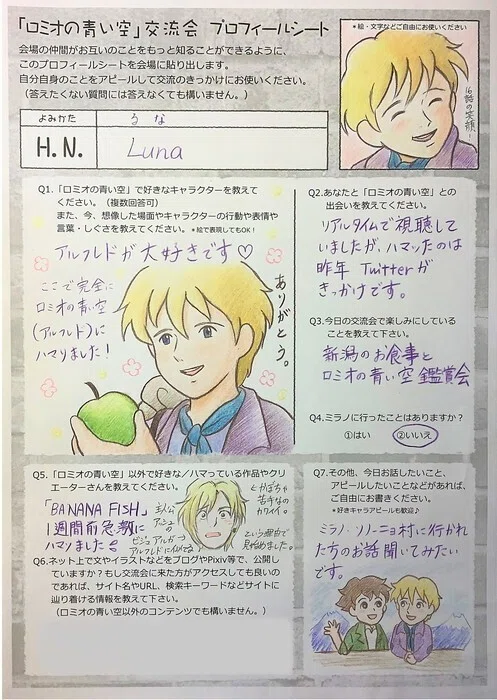 「ロミオの青い空」交流会 プロフィールシート
会場の仲間がお互いのことをもっと知ることができるように、
このプロフィールシートを会場に貼り出します。
自分自身のことをアピールして交流のきっかけにお使いください。
（答えたくない質問には答えなくても構いません。）
＊絵・文字などご自由にお使いください
16話の笑顔!
よみかた
るな
H.N.
Luna
Q1.「ロミオの青い空」で好きなキャラクターを教えて
ください。（複数回答可）
また、今、想像した場面やキャラクターの行動や表情や
言葉・しぐさを教えてください。＊絵で表現してもOK！
アルフレドが大好きです♡
ここで完全に
ロミオの青い空
(アルフレド)に
ハマりました！
ありがとう。
Q2.あなたと「ロミオの青い空」との
出会いを教えてください。
リアルタイムで視聴して
いましたが、ハマッたのは
昨年 Twitterが
きっかけです。
Q3.今日の交流会で楽しみにしている
ことを教えて下さい。
新潟のお食事と
ロミオの青い空 鑑賞会
Q4.ミラノに行ったことはありますか？
①はい ②いいえ
Q5.「ロミオの青い空」以外で好きな／ハマっている作品やクリ
エーターさんを教えてください。
「BANANA FISH」
1週間前急激に
ハマりました
主人公
アッシュ
ビジュアルが
アルフレドに似てる♪
とかぼちゃ
苦手なの
カワイイ。
という理由で
見始めました。
Q6.ネット上で文やイラストなどをブログやPixiv等で、公開し
ていますか？もし交流会に来た方がアクセスしても良いの
であれば、サイト名やURL、検索キーワードなどサイトに
辿り着ける情報を教えて下さい。
（ロミオの青い空以外のコンテンツでも構いません。）
Q7.その他、今日お話したいこと、
アピールしたいことなどがあれば、
ご自由にお書きください。
＊好きキャラアピールも歓迎♪
ミラノ・ソノーニョ村に行かれ
た方のお話 聞いてみたい
です。